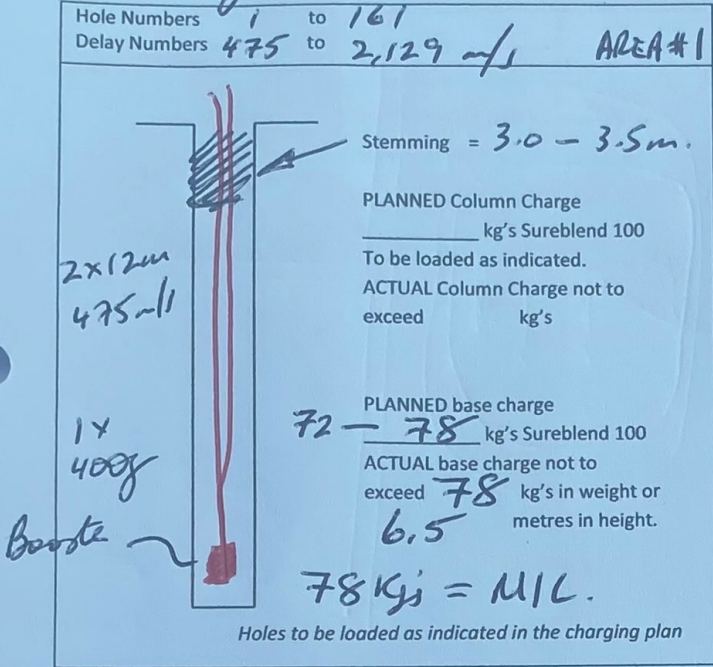 Hole Numbers 1 to 161
Delay Numbers 475 to 2,129 m/s AREA #1
Stemming = 3.0 - 3.5m.
PLANNED Column Charge
kg's Sureblend 100
To be loaded as indicated.
ACTUAL Column Charge not to
exceed kg's
2x12m
475m/s
PLANNED base charge
72 - 78 kg's Sureblend 100
ACTUAL base charge not to
exceed 78 kg's in weight or
6.5 metres in height.
1x
400g
Booste
78 Kgs = M/C.
Holes to be loaded as indicated in the charging plan